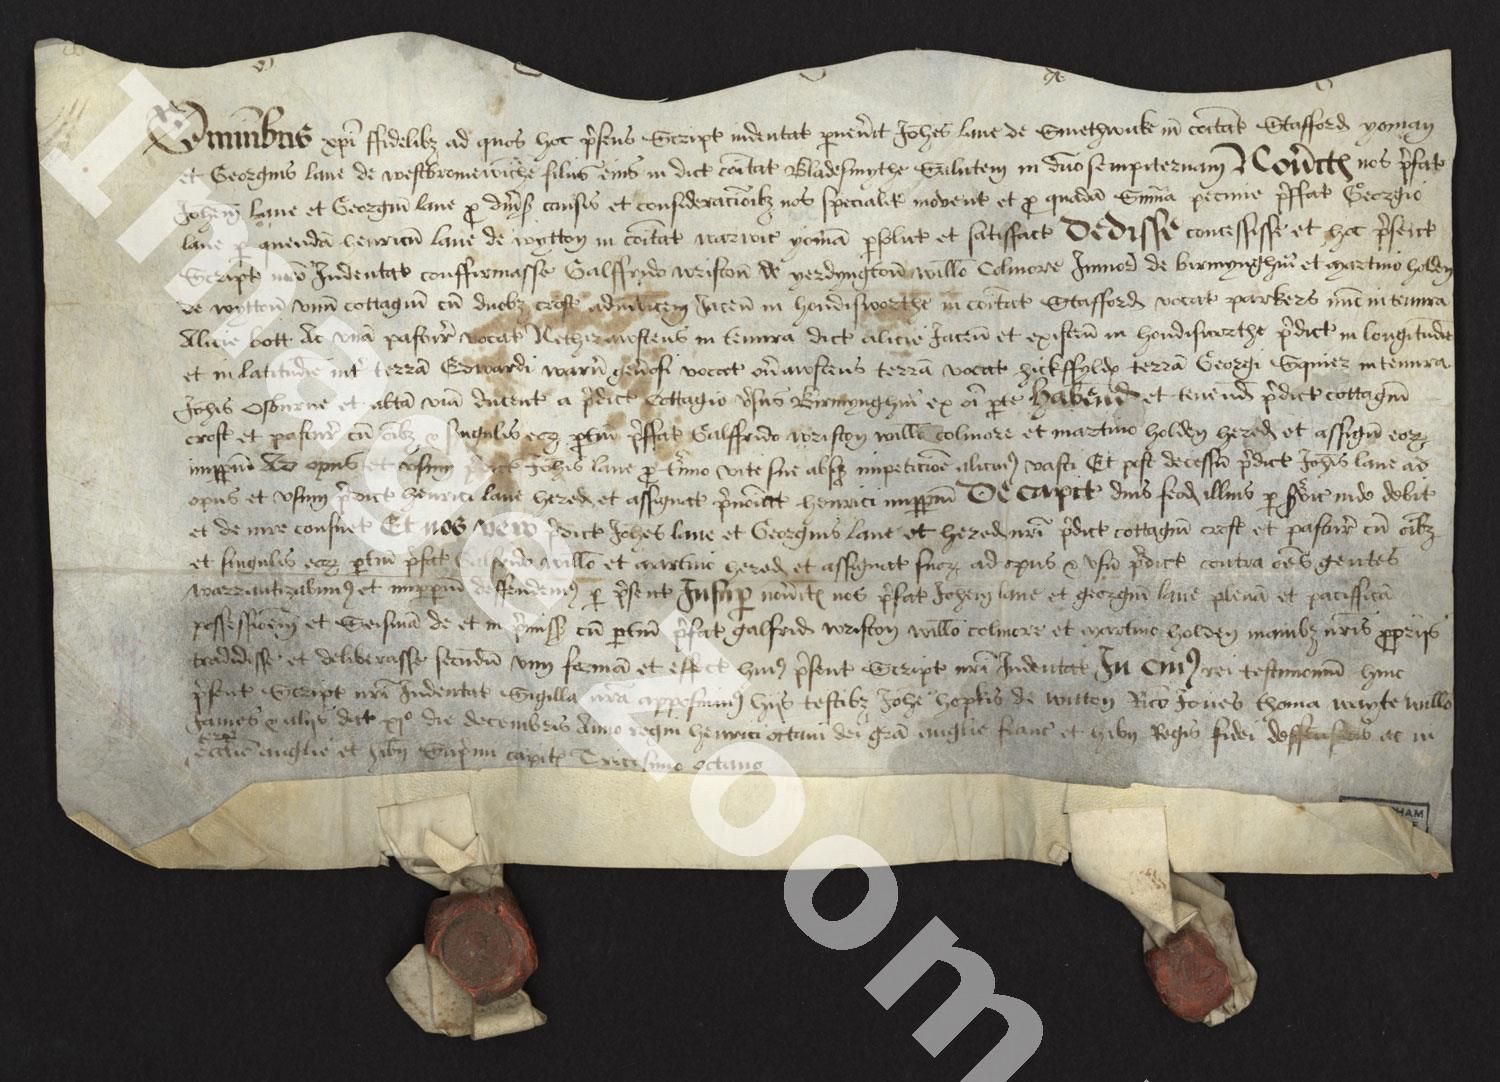 Omnibus xpi ffidelibz ad quos hoc psens Script indentat pvenit Johes lane de Smethwicke in comitat Stafford yoman
et Georgius lane de westbromewiche filius eius in dict comitat Bladesmythe Salutem in dno sempiternam Noveritis nos prefat
Johem lane et Georgiu lane p divsis causis et consideracioibz nos specialit movent et p quadam Suma pecunie prefat Georgio
lane p quenda henricu lane de wytton in comitat warwic yoma psolut et satisfact Dedisse concessisse et hoc psent
Script nro Indentat confirmasse Galffrydo wriston de yerdyngton willo Colmore Junior de birmynghm et martino holden
de wytton unu cottagiu cu duabz croft adinvicem Jacen in hondisworthe in comitat Stafford vocat parkers nunc in tenura
Alicie bott Ac una pastur vocat in tenura dict alicie Jacen et existen in hondisworthe pdict in longitudie
et in latitudie int terra Edwardi generosi vocat terra vocat hickffyld terra Georgi in tenura
Johis Osburne et alta via ducent a pdict cottagio vsus Birmynghm ex oi pte habend et tenend pdict cottagiu
croft et pastur cu oibz & singulis eoz ptin prefat Galffrido wriston willo colmore et martino holden hered et assign eoz
impptm Ad opus et usum pdict Johis lane p tmino vite sue absqz impeticioe alicui9 vasti Et post decessu pdict Johis lane ad
opus et usum pdict henrici lane hered et assignat henrici impptm De capit dnis feod illius p svic inde debit
et de iure consuet Et nos vero pdict Johes lane et Georgius lane et hered nri pdict cottagiu croft et pastur cu oibz
et singulis eoz ptin prefat Galfrido willo et martino hered et assignat suoz ad opus & usu pdict contra oes gentes
warrantizabim9 et impptm deffendem9 p psent Insup novit nos prefat Johem lane et georgiu lane plena et paciffica
possessioem et Seisina de et in pmiss cu ptin prefat galfrid wriston willo colmore et martino holden manibz nris ppriis
tradidisse et deliberasse secundu vim forma et effect hui9 psent Script nri Indentat In cui9 rei testimonium huic
psent Script nri Indentat Sigilla nra apposuim9 hiis testibz Johe hopkis de witton Rico Jones thoma wayte willo
James & aliis dat xj° die decembris Anno regni henrici octavi dei gra anglie franc et hibn Regis fidei deffensoris ac in
terr
ecclie anglie et hibn Supmi capit Tricesimo octavo